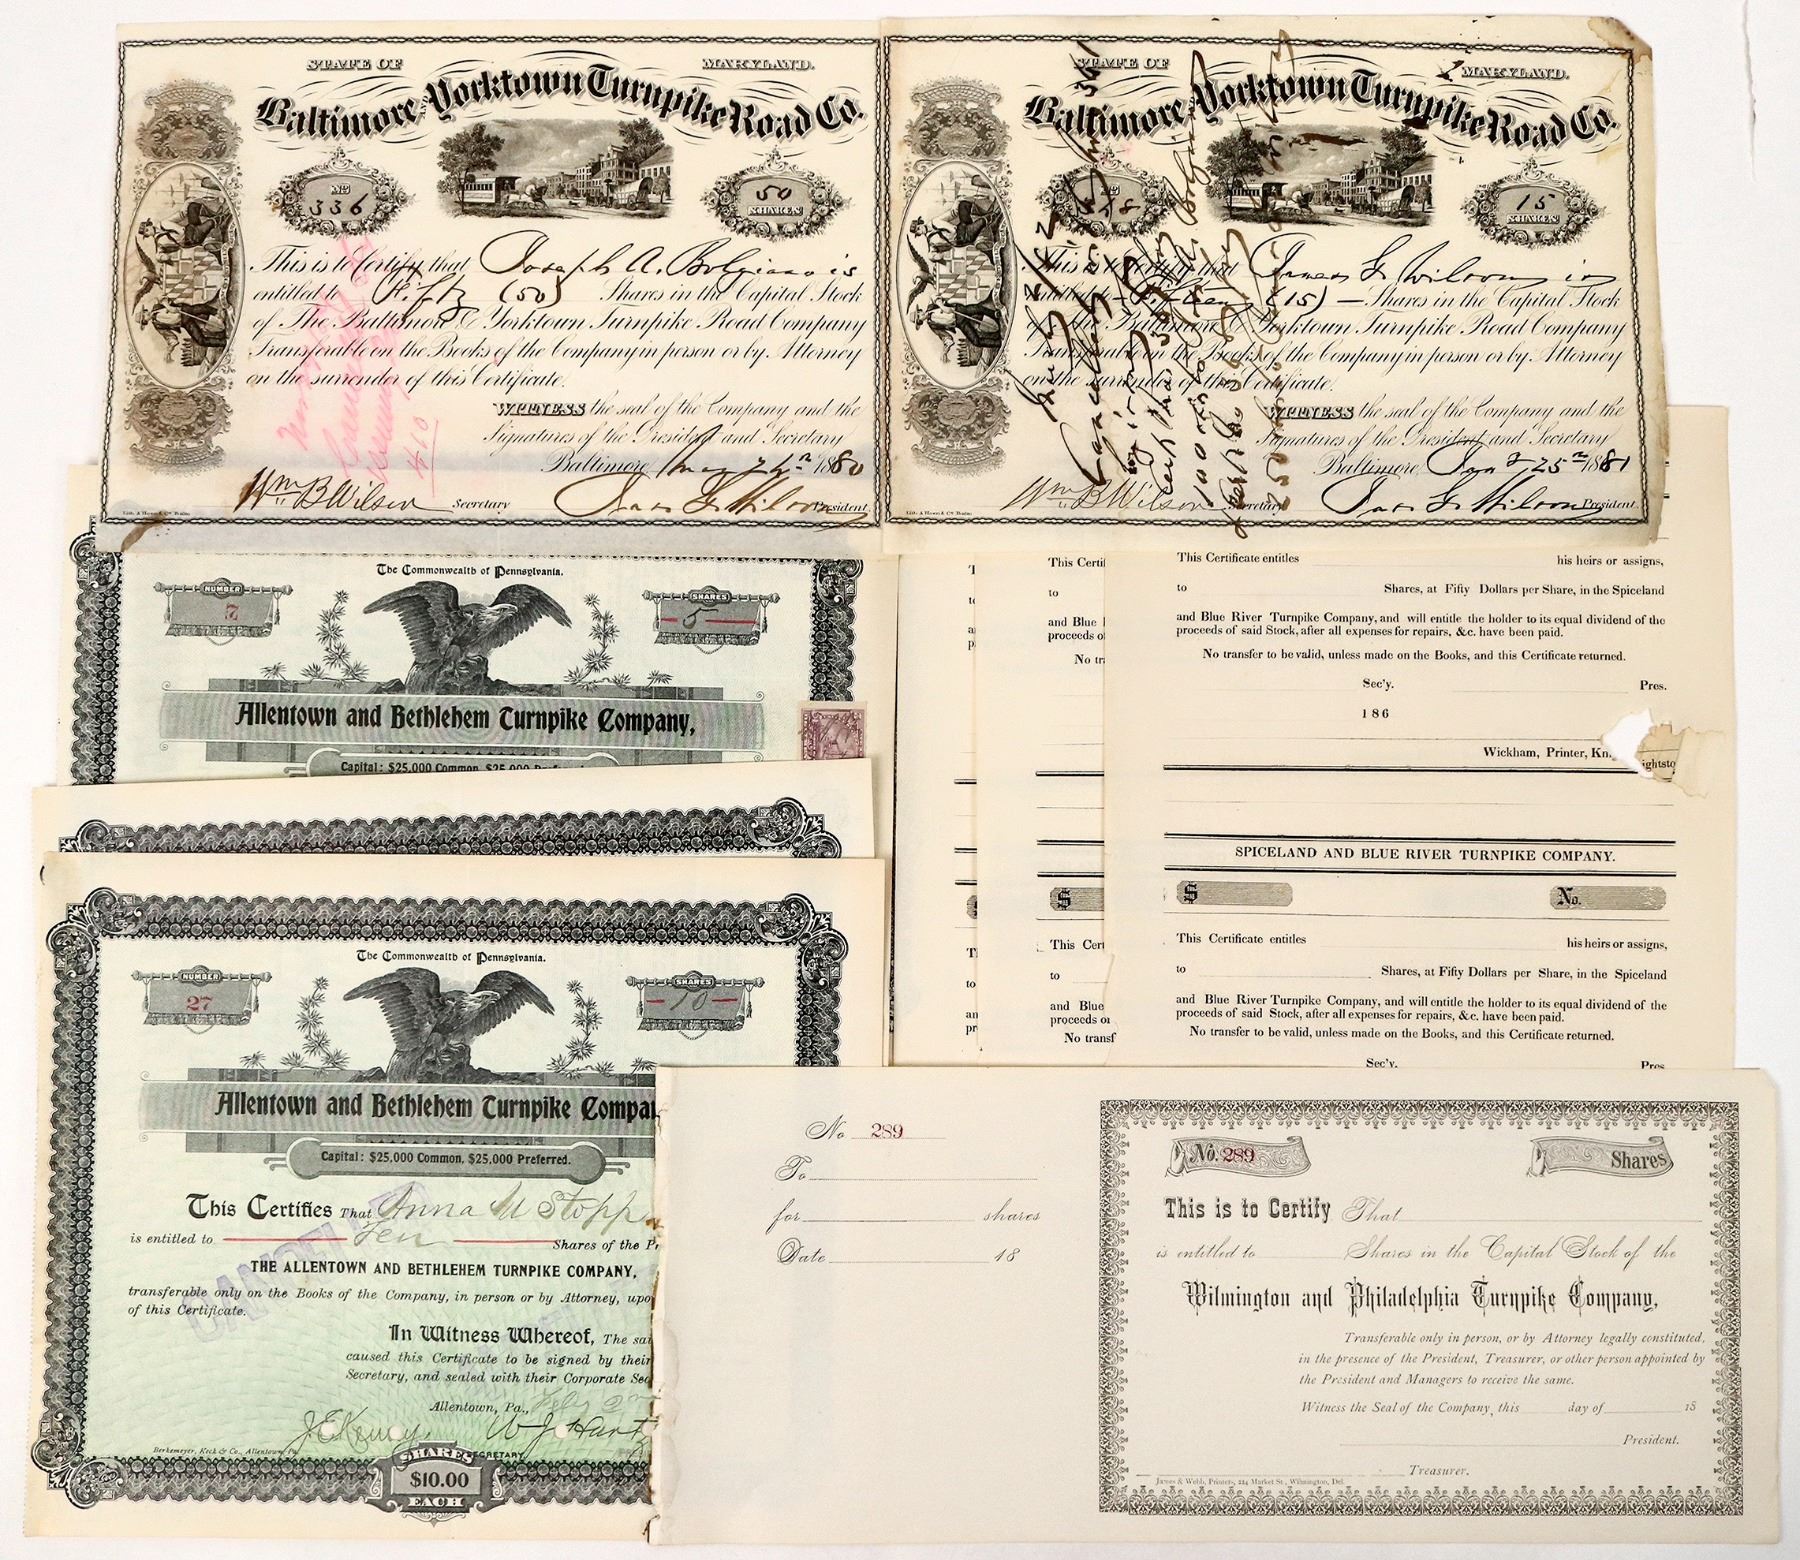 STATE OF MARYLAND.
Baltimore and Yorktown Turnpike Road Co.
No 336
50 SHARES
This is to Certify that Joseph A. Bolgiano is
entitled to Fifty (50) Shares in the Capital Stock
of The Baltimore & Yorktown Turnpike Road Company
Transferable on the Books of the Company in person or by Attorney
on the surrender of this Certificate.
WITNESS the seal of the Company and the
Signatures of the President and Secretary
Baltimore, May 1880
Wm B Wilson Secretary
President
Lith. A Hoen & Co. Balto.
STATE OF MARYLAND.
Baltimore and Yorktown Turnpike Road Co.
No
15 SHARES
This is to Certify that James G Wilson is
entitled to Fifteen (15) Shares in the Capital Stock
of The Baltimore & Yorktown Turnpike Road Company
Transferable on the Books of the Company in person or by Attorney
on the surrender of this Certificate.
WITNESS the seal of the Company and the
Signatures of the President and Secretary
Baltimore, 25 1881
Wm B Wilson Secretary
President
Lith. A Hoen & Co. Balto.
Cancelled
The Commonwealth of Pennsylvania.
NUMBER 7
SHARES 5
Allentown and Bethlehem Turnpike Company,
Capital: $25,000 Common, $25,000
The Commonwealth of Pennsylvania.
NUMBER 27
SHARES 10
Allentown and Bethlehem Turnpike Compa
Capital: $25,000 Common, $25,000 Preferred.
This Certifies That Anna M Stopp
is entitled to Ten Shares of the
THE ALLENTOWN AND BETHLEHEM TURNPIKE COMPANY,
transferable only on the Books of the Company, in person or by Attorney, upo
of this Certificate.
CANCELLED
In Witness Whereof, The sai
caused this Certificate to be signed by their
Secretary, and sealed with their Corporate Sea
Allentown, Pa.,
SECRETARY
Berkemeyer, Keck & Co., Allentown, Pa.
SHARES
$10.00
EACH
This Certi
to
and Blue
proceeds of
No tr
$
This Cert
to
and Blue
proceeds o
No transf
This Certificate entitles his heirs or assigns,
to Shares, at Fifty Dollars per Share, in the Spiceland
and Blue River Turnpike Company, and will entitle the holder to its equal dividend of the
proceeds of said Stock, after all expenses for repairs, &c. have been paid.
No transfer to be valid, unless made on the Books, and this Certificate returned.
Sec'y. Pres.
186
Wickham, Printer, Kn ightsto
SPICELAND AND BLUE RIVER TURNPIKE COMPANY.
$ No.
This Certificate entitles his heirs or assigns,
to Shares, at Fifty Dollars per Share, in the Spiceland
and Blue River Turnpike Company, and will entitle the holder to its equal dividend of the
proceeds of said Stock, after all expenses for repairs, &c. have been paid.
No transfer to be valid, unless made on the Books, and this Certificate returned.
Sec'y. Pres.
No 289
To
for shares
Date 18
No. 289
Shares
This is to Certify That
is entitled to Shares in the Capital Stock of the
Wilmington and Philadelphia Turnpike Company,
Transferable only in person, or by Attorney legally constituted,
in the presence of the President, Treasurer, or other person appointed by
the President and Managers to receive the same.
Witness the Seal of the Company, this day of 18
President.
Treasurer.
James & Webb, Printers, 224 Market St., Wilmington, Del.